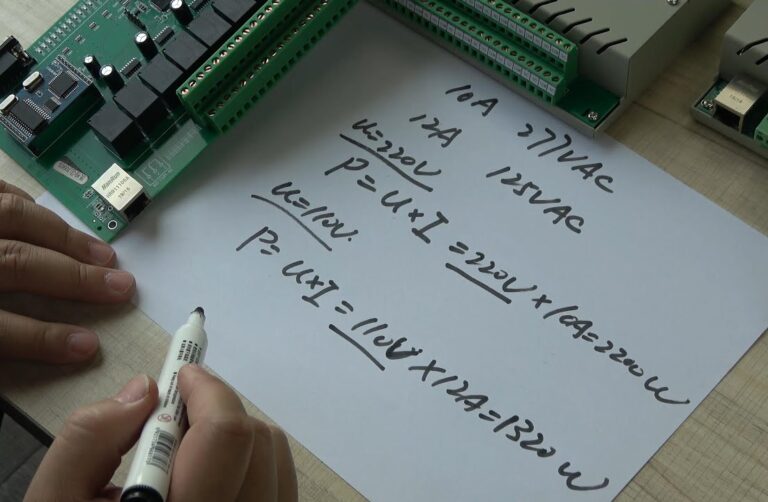 10A 277VAC
12A 125VAC
U=220V
P=U×I=220V×10A=2200W
U=110V.
P=U×I=110V×12A=1320W